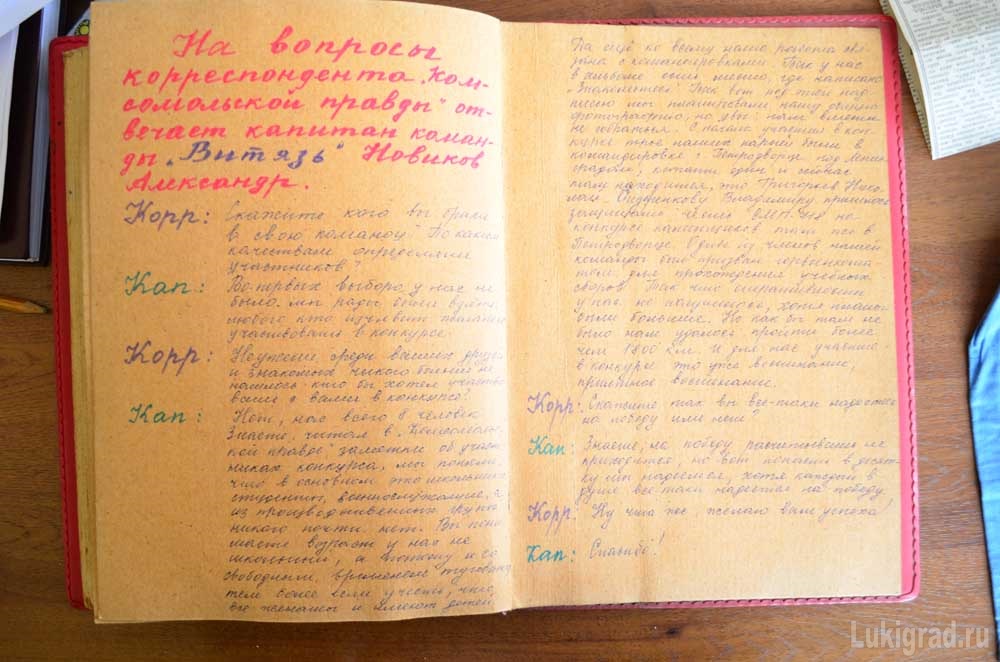 На вопросы
корреспондента „Ком-
сомольской правды" от-
вечает капитан коман-
ды „Витязь" Новиков
Александр.
Корр: Скажите кого вы брали
в свою команду? По каким
качествам определяли
участников?
Кап: Во-первых выбора у нас не
было. мы рады были взять
любого кто изъявит желание
участвовать в конкурсе.
Корр: Неужели среди ваших друзей
и знакомых никого больше не
нашлось кто бы хотел участво
вать с вами в конкурсе?
Кап: Нет, нас всего 8 человек
Знаете, читая в „Комсомоль-
кой правде" заметки об участ
никах конкурса, мы поняли
что в основном это школьники
студенты, военнослужащие, а
из производственных групп
никого почти нет. Вы пони
маете возраст у нас не
школьный, а поэтому и со
свободным временем туговато
тем более если учесть, что
все женаты и имеют детей
Да ещё ко всему наша работа свя-
зана с командировками. Так у нас
в альбоме есть место, где написано
„Знакомьтесь". Так вот под этой над-
писью мы планировали нашу общую
фотографию, но увы! нам вместе
не собраться. С начала участия в кон-
курсе трое наших парней были в
командировке г. Петродворце под Ленин-
градом, кстати один и сейчас
там находится, это Григорьев Нико-
лай. Владимиру пришлось
защищать честь на
конкурсе там же в
Петродворце. Один из членов нашей
команды был призван горвоенкома-
том, для прохождения учебных
сборов. Так что оперативности
у нас не получилось, хотя планы
были большие. Но как бы там не
было нам удалось пройти более
чем 1800 км. И для нас участие
в конкурсе это уже воспитание,
приятное воспитание.
Корр: Скажите так вы все-таки надеетесь
на победу или нет?
Кап: Знаете, на победу рассчитывать не
приходится но вот попасть в десят-
ку мы надеемся, хотя каждый в
душе все таки надеется на победу.
Корр: Ну что же, желаю вам успеха!
Кап: Спасибо!
Lukigrad.ru